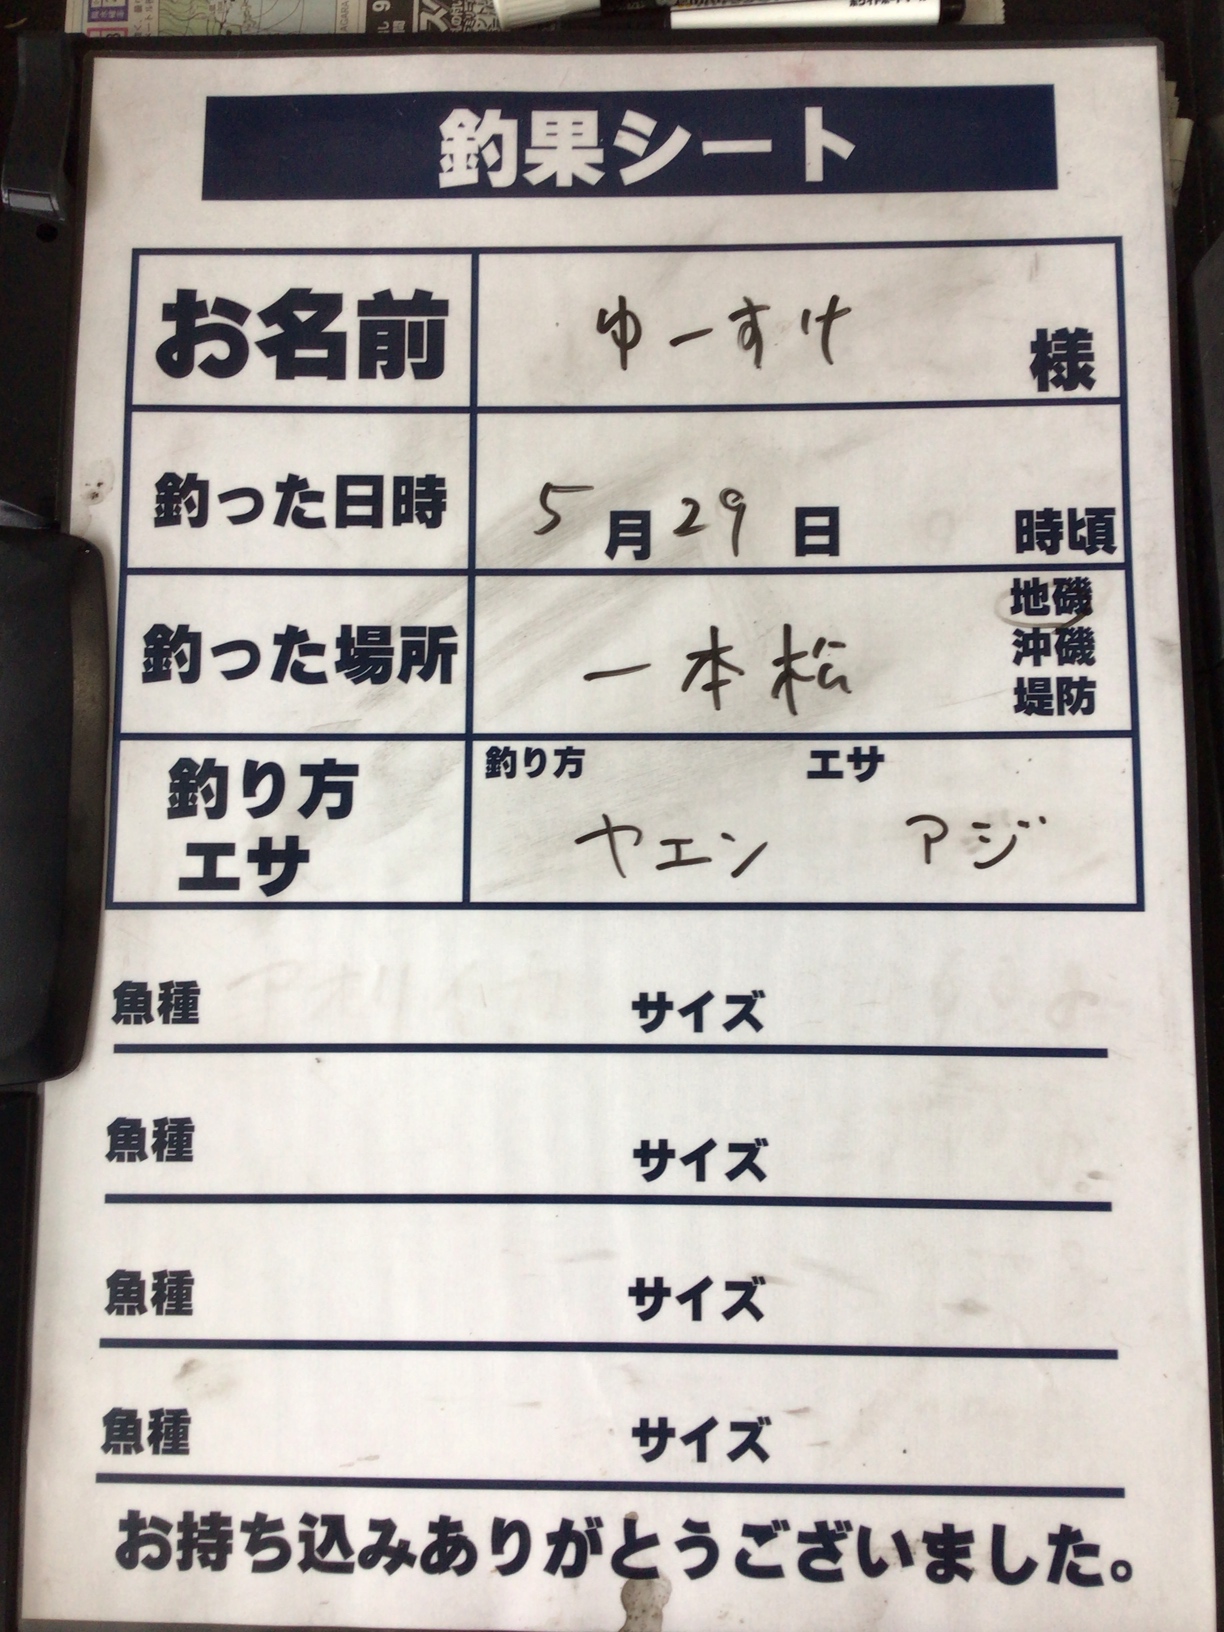 釣果シート
お名前 ゆーすけ 様
釣った日時 5月29日 時頃
釣った場所 一本松 地磯
沖磯
堤防
釣り方 エサ
釣り方
エサ
ヤエン アジ
魚種 サイズ
魚種 サイズ
魚種 サイズ
魚種 サイズ
お持ち込みありがとうございました。